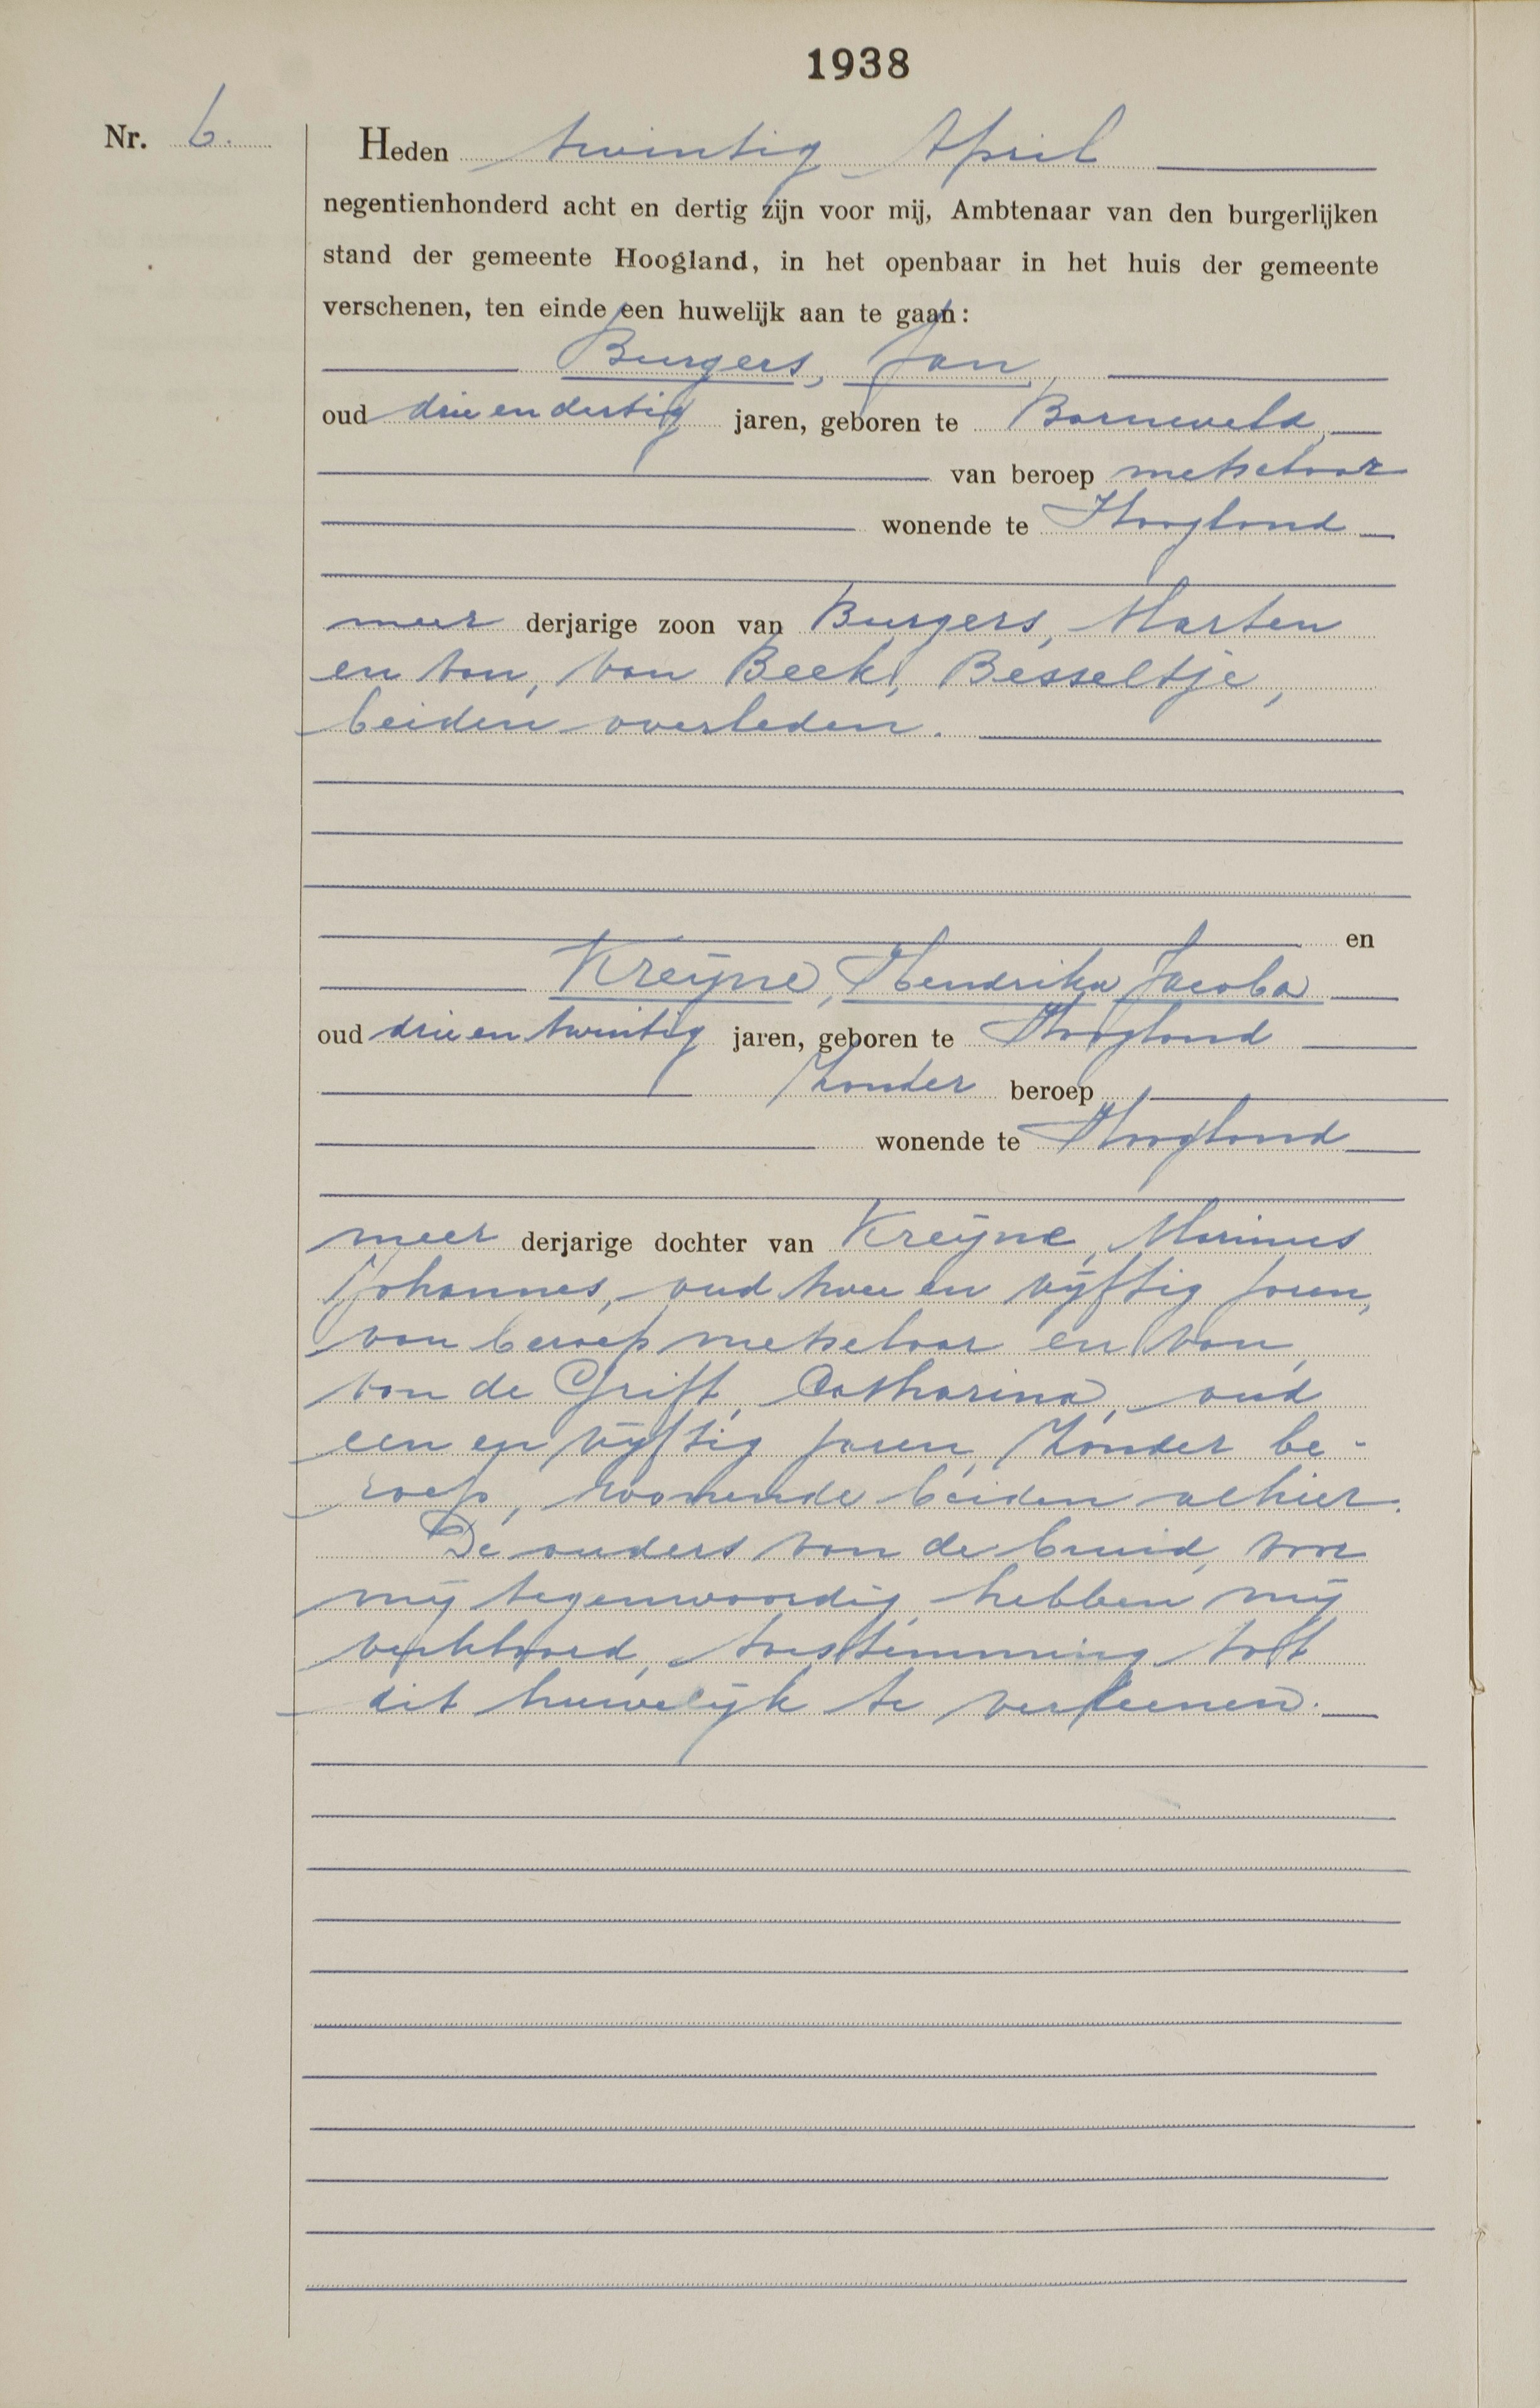 1938
Nr. 6.
Heden twintig April
negentienhonderd acht en dertig zijn voor mij, Ambtenaar van den burgerlijken
stand der gemeente Hoogland, in het openbaar in het huis der gemeente
verschenen, ten einde een huwelijk aan te gaan:
Burgers, Jan,
oud drie en dertig jaren, geboren te Barneveld,
van beroep metselaar
wonende te Hoogland
meer derjarige zoon van Burgers, Marten
en van, van Beek, Besseltje,
beiden overleden.
en
Kreijne, Hendrika Jacoba
oud drie en twintig jaren, geboren te Hoogland
zonder beroep
wonende te Hoogland
meer derjarige dochter van Kreijne, Marinus
Johannes, oud twee en vijftig jaren,
van beroep metselaar en van,
van de Grift, Catharina, oud
een en vijftig jaren, zonder be-
roep, wonende beiden alhier.
De ouders van de bruid, voor
mij tegenwoordig, hebben mij
verklaard, toestemming tot
dit huwelijk te verleenen.